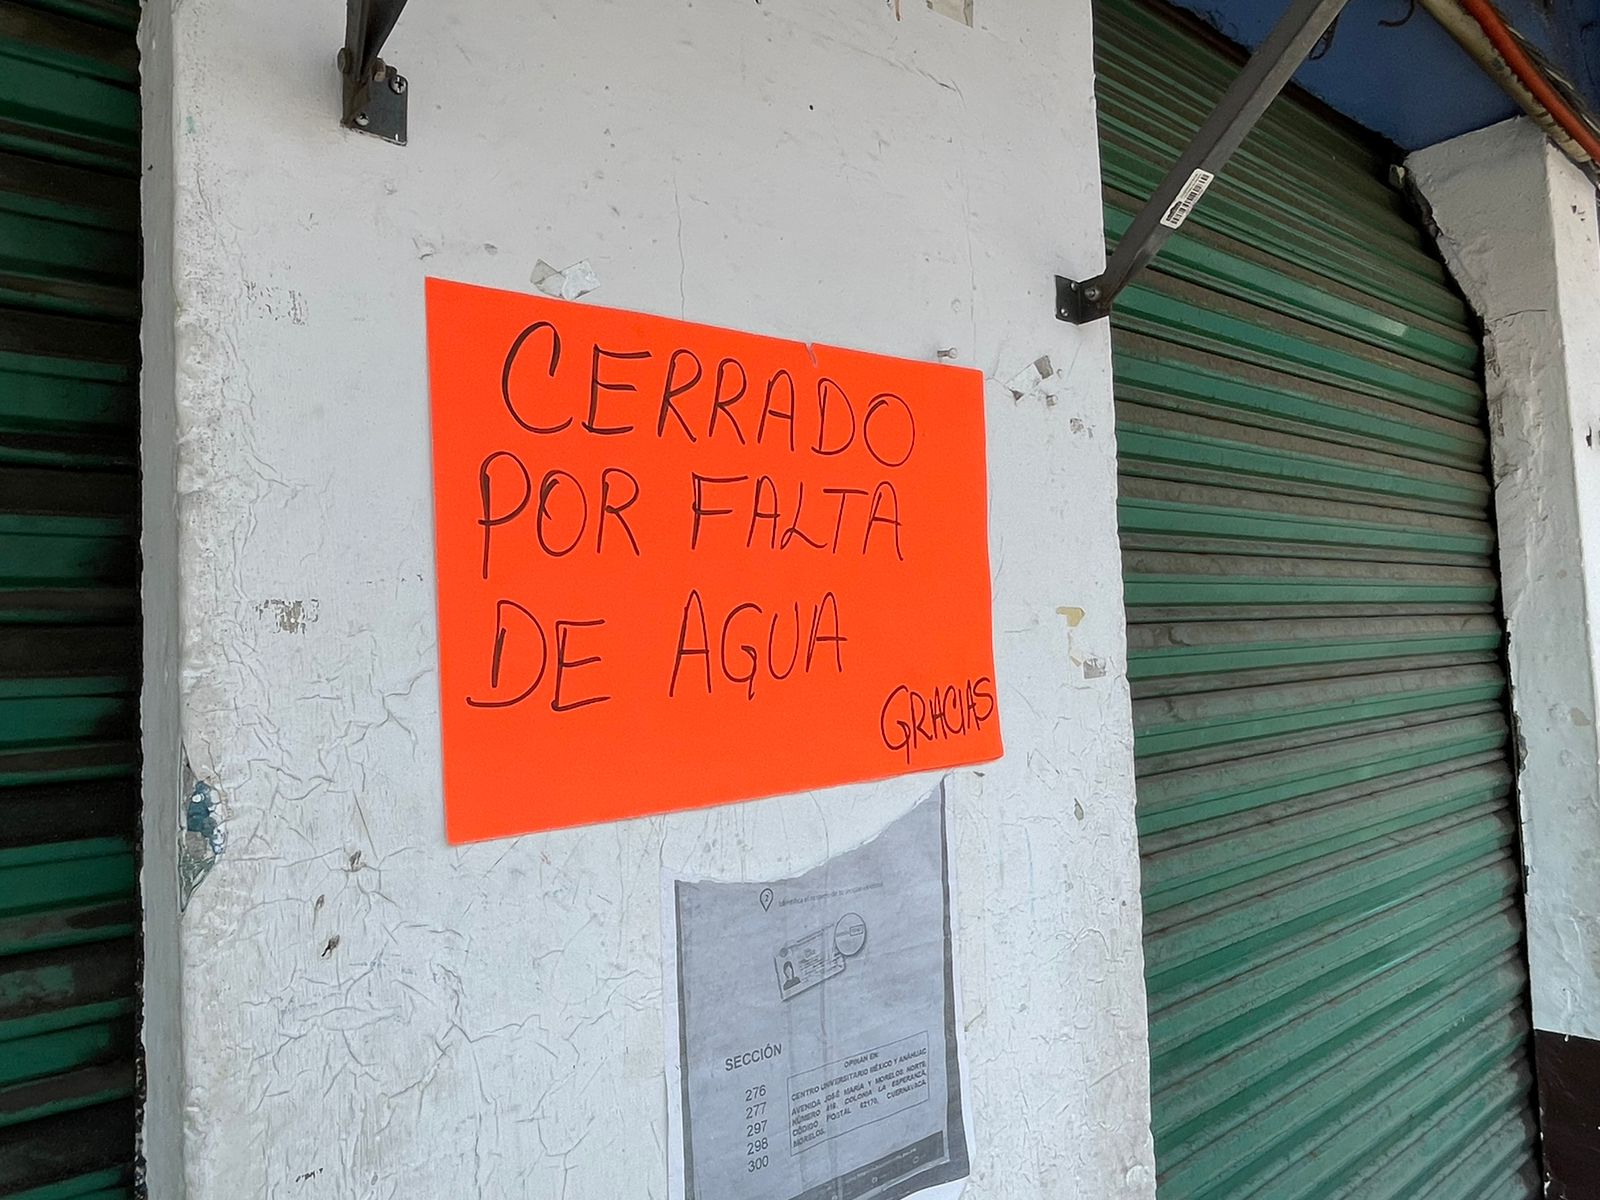 CERRADO
POR FALTA
DE AGUA
GRACIAS
SECCIÓN
276
277
297
298
300
OPINAN EN:
CENTRO UNIVERSITARIO MÉXICO Y ANÁHUAC
AVENIDA JOSÉ MARÍA Y MORELOS NORTE,
NÚMERO 418, COLONIA LA ESPERANZA,
CÓDIGO POSTAL 62170, CUERNAVACA,
MORELOS.